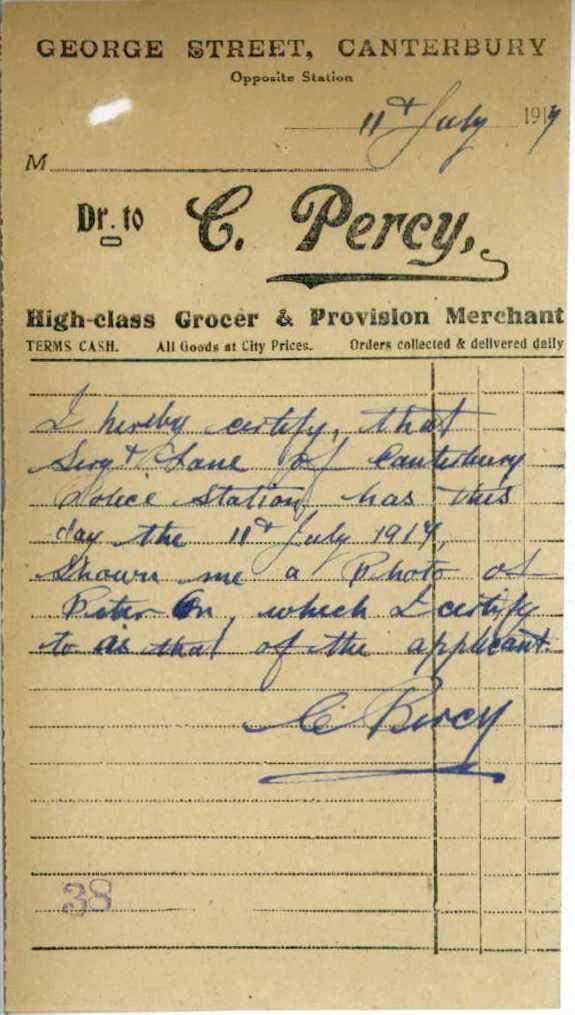 GEORGE STREET, CANTERBURY
Opposite Station
11th July 1917
M
Dr. to C. Percy,
High-class Grocer & Provision Merchant
TERMS CASH. All Goods at City Prices. Orders collected & delivered daily
I hereby certify, that
Sergt Lane of Canterbury
Police Station, has this
day the 11th July 1917,
Shown me a Photo of
Peter On, which I certify
to as that of the applicant.
C Percy
38